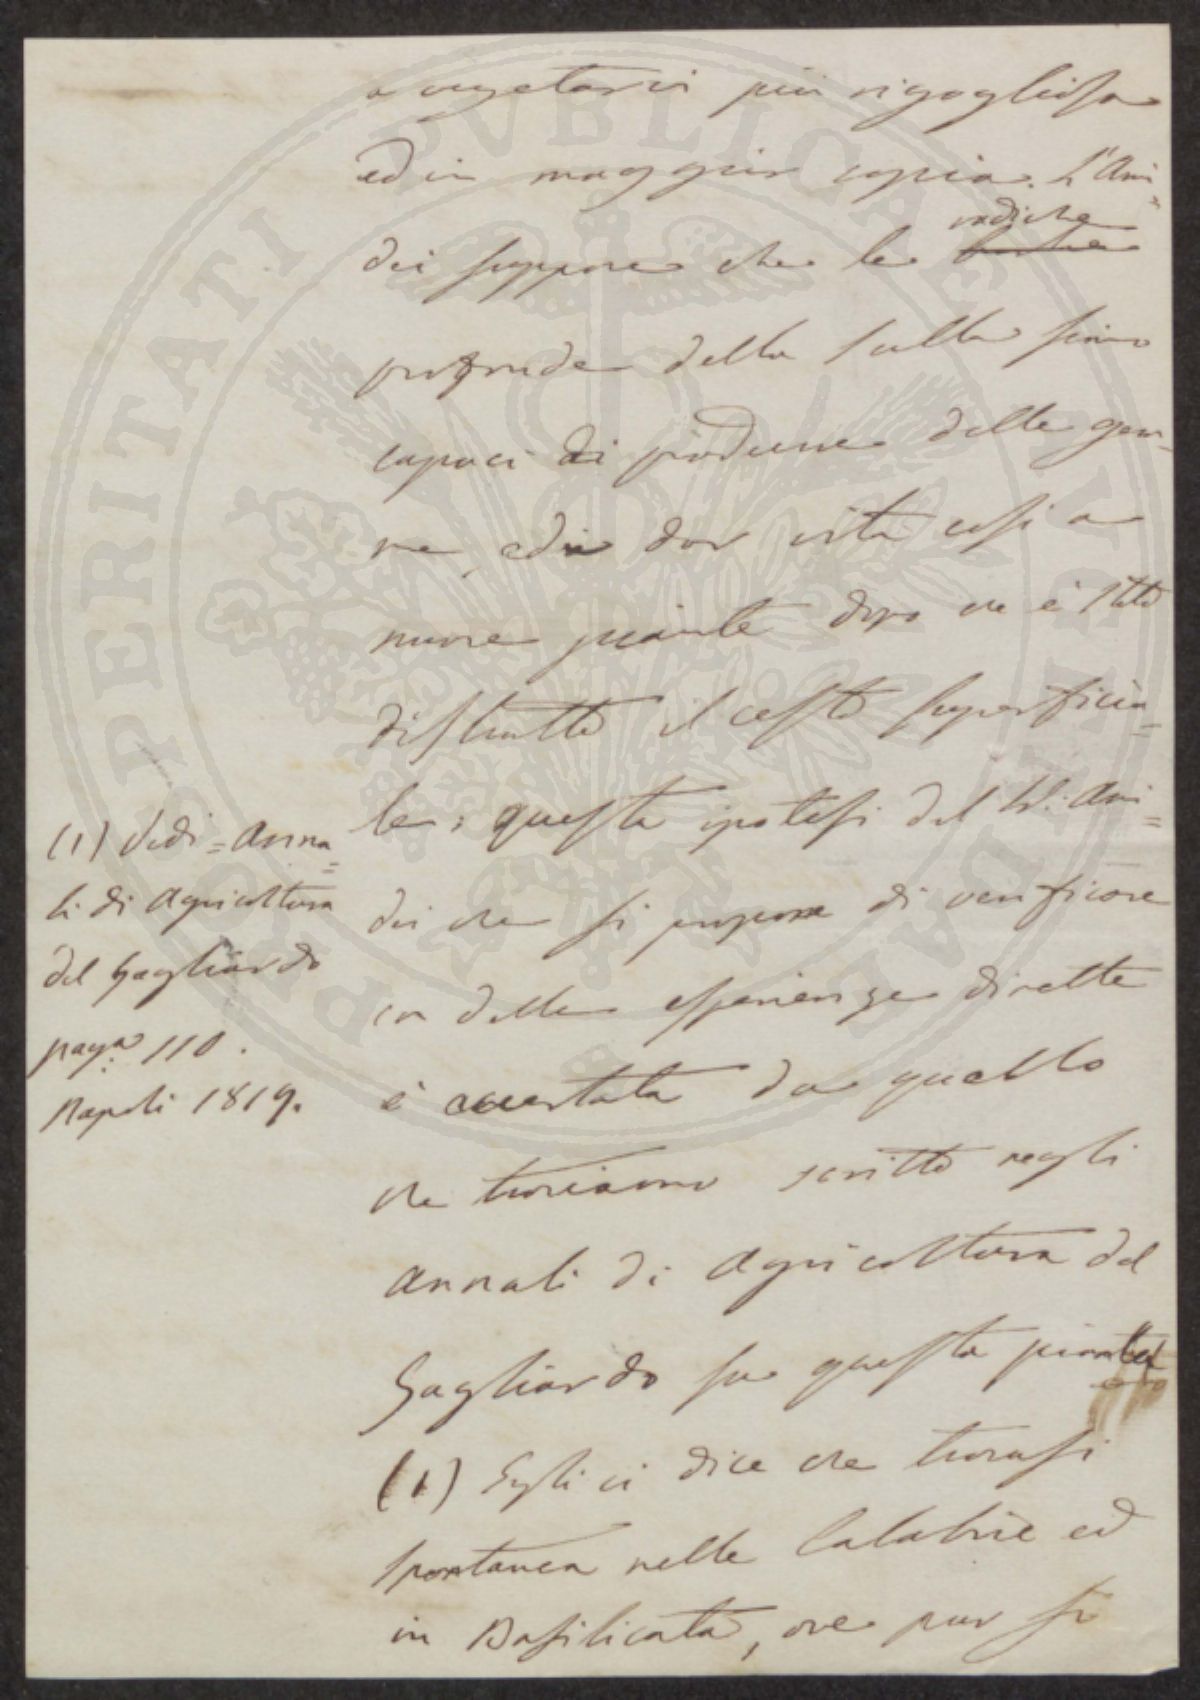 a vegetarvi più rigogliosa
ed in maggior copia. L'Ami=
dei suppone che le radiche
profonde della sulla sieno
capaci di produrre delle gem=
me, e di dar vita così a
nuove piante dopo che è stato
distrutto il cesto superficia=
le; questa ipotesi del Sl: Ami=
dei che si propone di verificare
con delle esperienze dirette
è accertata da quello
che troviamo scritto negli
annali di Agricoltura del
Gagliardo su questa pianta
(1) Egli ci dice che trovasi
spontanea nelle Calabrie ed
in Basilicata, ove pur si
(1) Vedi = Anna=
li di Agricoltura
del Gagliardo
paga. 110.
Napoli 1819.
PROSPERITATI PVBLICAE AVGENDAE